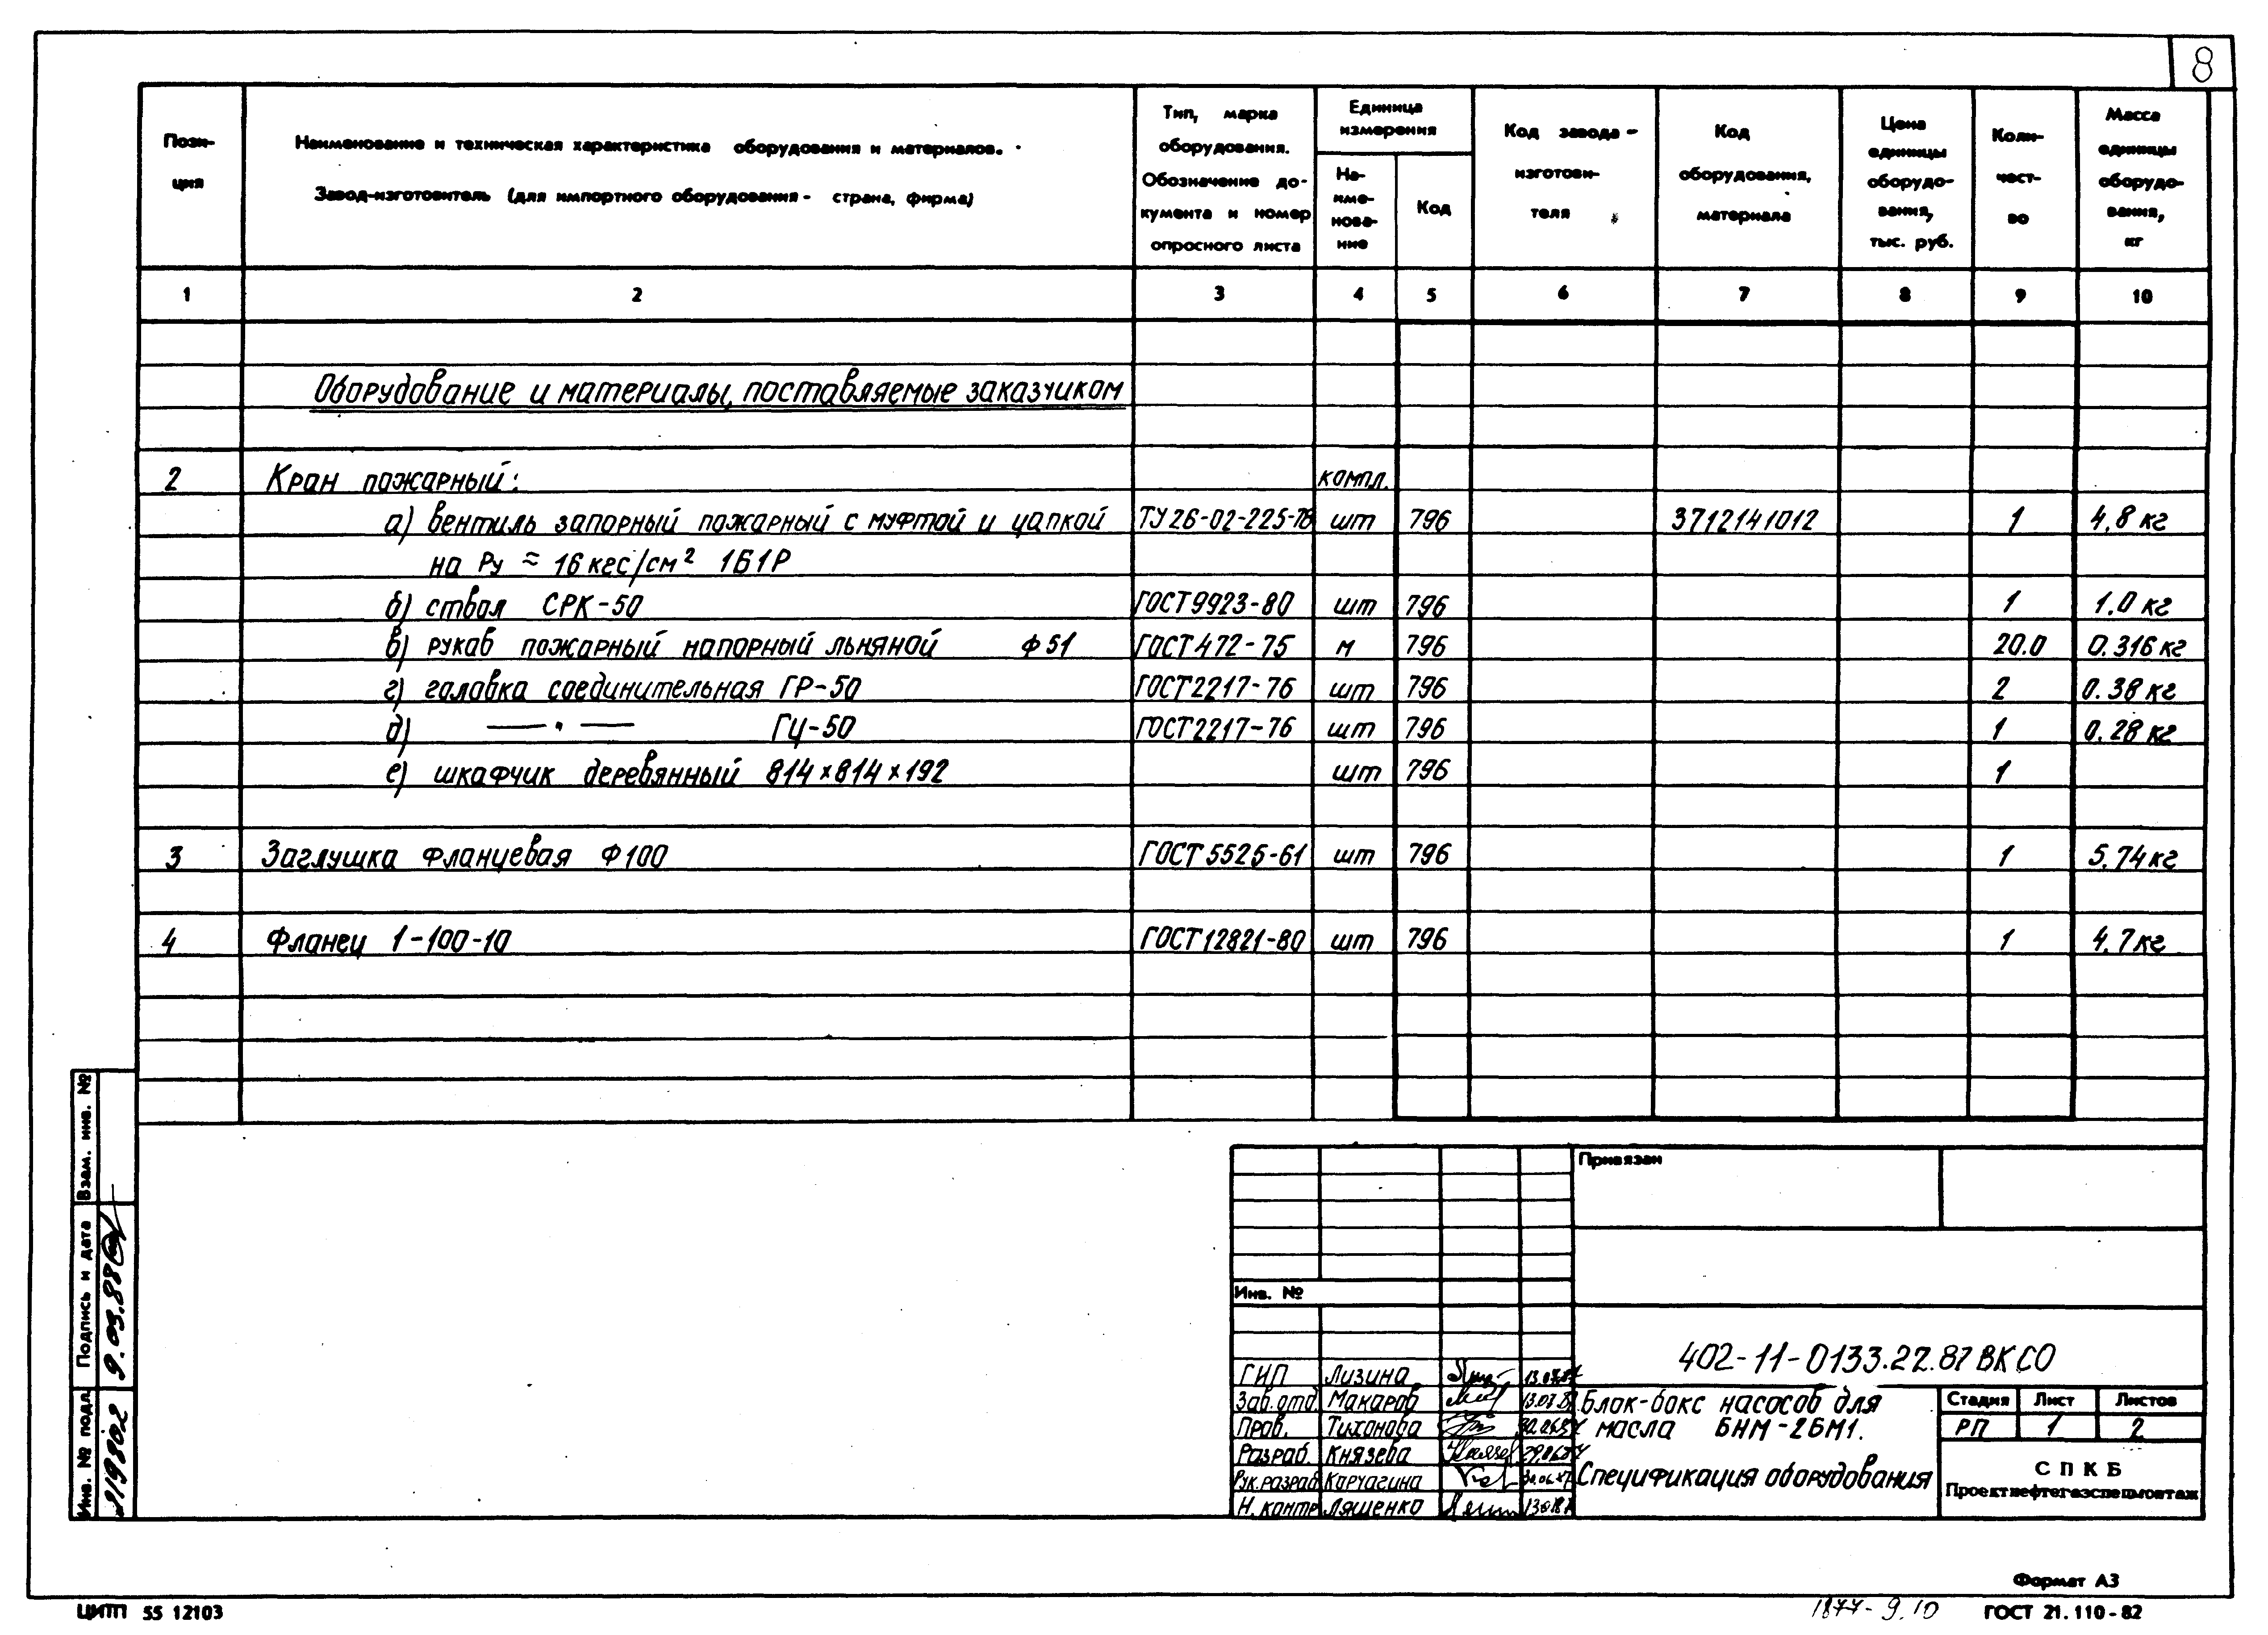 8
Пози-
ция
Наименование и техническая характеристика оборудования и материалов.
Завод-изготовитель (для импортного оборудования - страна, фирма)
Тип, марка
оборудования.
Обозначение до-
кумента и номер
опросного листа
Единица
измерения
На-
име-
нова-
ние
Код
Код завода -
изготови-
теля
Код
оборудования,
материала
Цена
единицы
оборудо-
вания,
тыс. руб.
Коли-
чест-
во
Масса
единицы
оборудо-
вания,
кг
1 2 3 4 5 6 7 8 9 10
Оборудование и материалы, поставляемые заказчиком
2 Кран пожарный: компл.
а) вентиль запорный пожарный с муфтой и цапкой ТУ 26-02-225-78 шт 796 3712141012 1 4,8 кг
на Ру ≈ 16 кгс/см² 1Б1Р
б) ствол СРК-50 ГОСТ 9923-80 шт 796 1 1.0 кг
в) рукав пожарный напорный льняной Ф 51 ГОСТ 472-75 м 796 20.0 0.316 кг
г) головка соединительная ГР-50 ГОСТ 2217-76 шт 796 2 0.38 кг
д) — " — ГЦ-50 ГОСТ 2217-76 шт 796 1 0.28 кг
е) шкафчик деревянный 814×814×192 шт 796 1
3 Заглушка фланцевая Ф100 ГОСТ 5525-61 шт 796 1 5.74 кг
4 Фланец 1-100-10 ГОСТ 12821-80 шт 796 1 4.7 кг
Взам. инв. №
Подпись и дата
9.03.88
Инв. № подл.
219802
Привязан
Инв. №
402-11-0133.22.87 ВК СО
ГИП Лизина
Зав. отд. Макаров
Пров. Тихонова
Разраб. Князева
Рук. разраб Карчагина
Н. контр Ляшенко
Блок-бокс насосов для
масла БНМ-2БМ1.
Спецификация оборудования
Стадия Лист Листов
РП 1 2
СПКБ
Проектнефтегазспецмонтаж
Формат А3
ЦИТП 55 12103
1877-9.10
ГОСТ 21.110-82